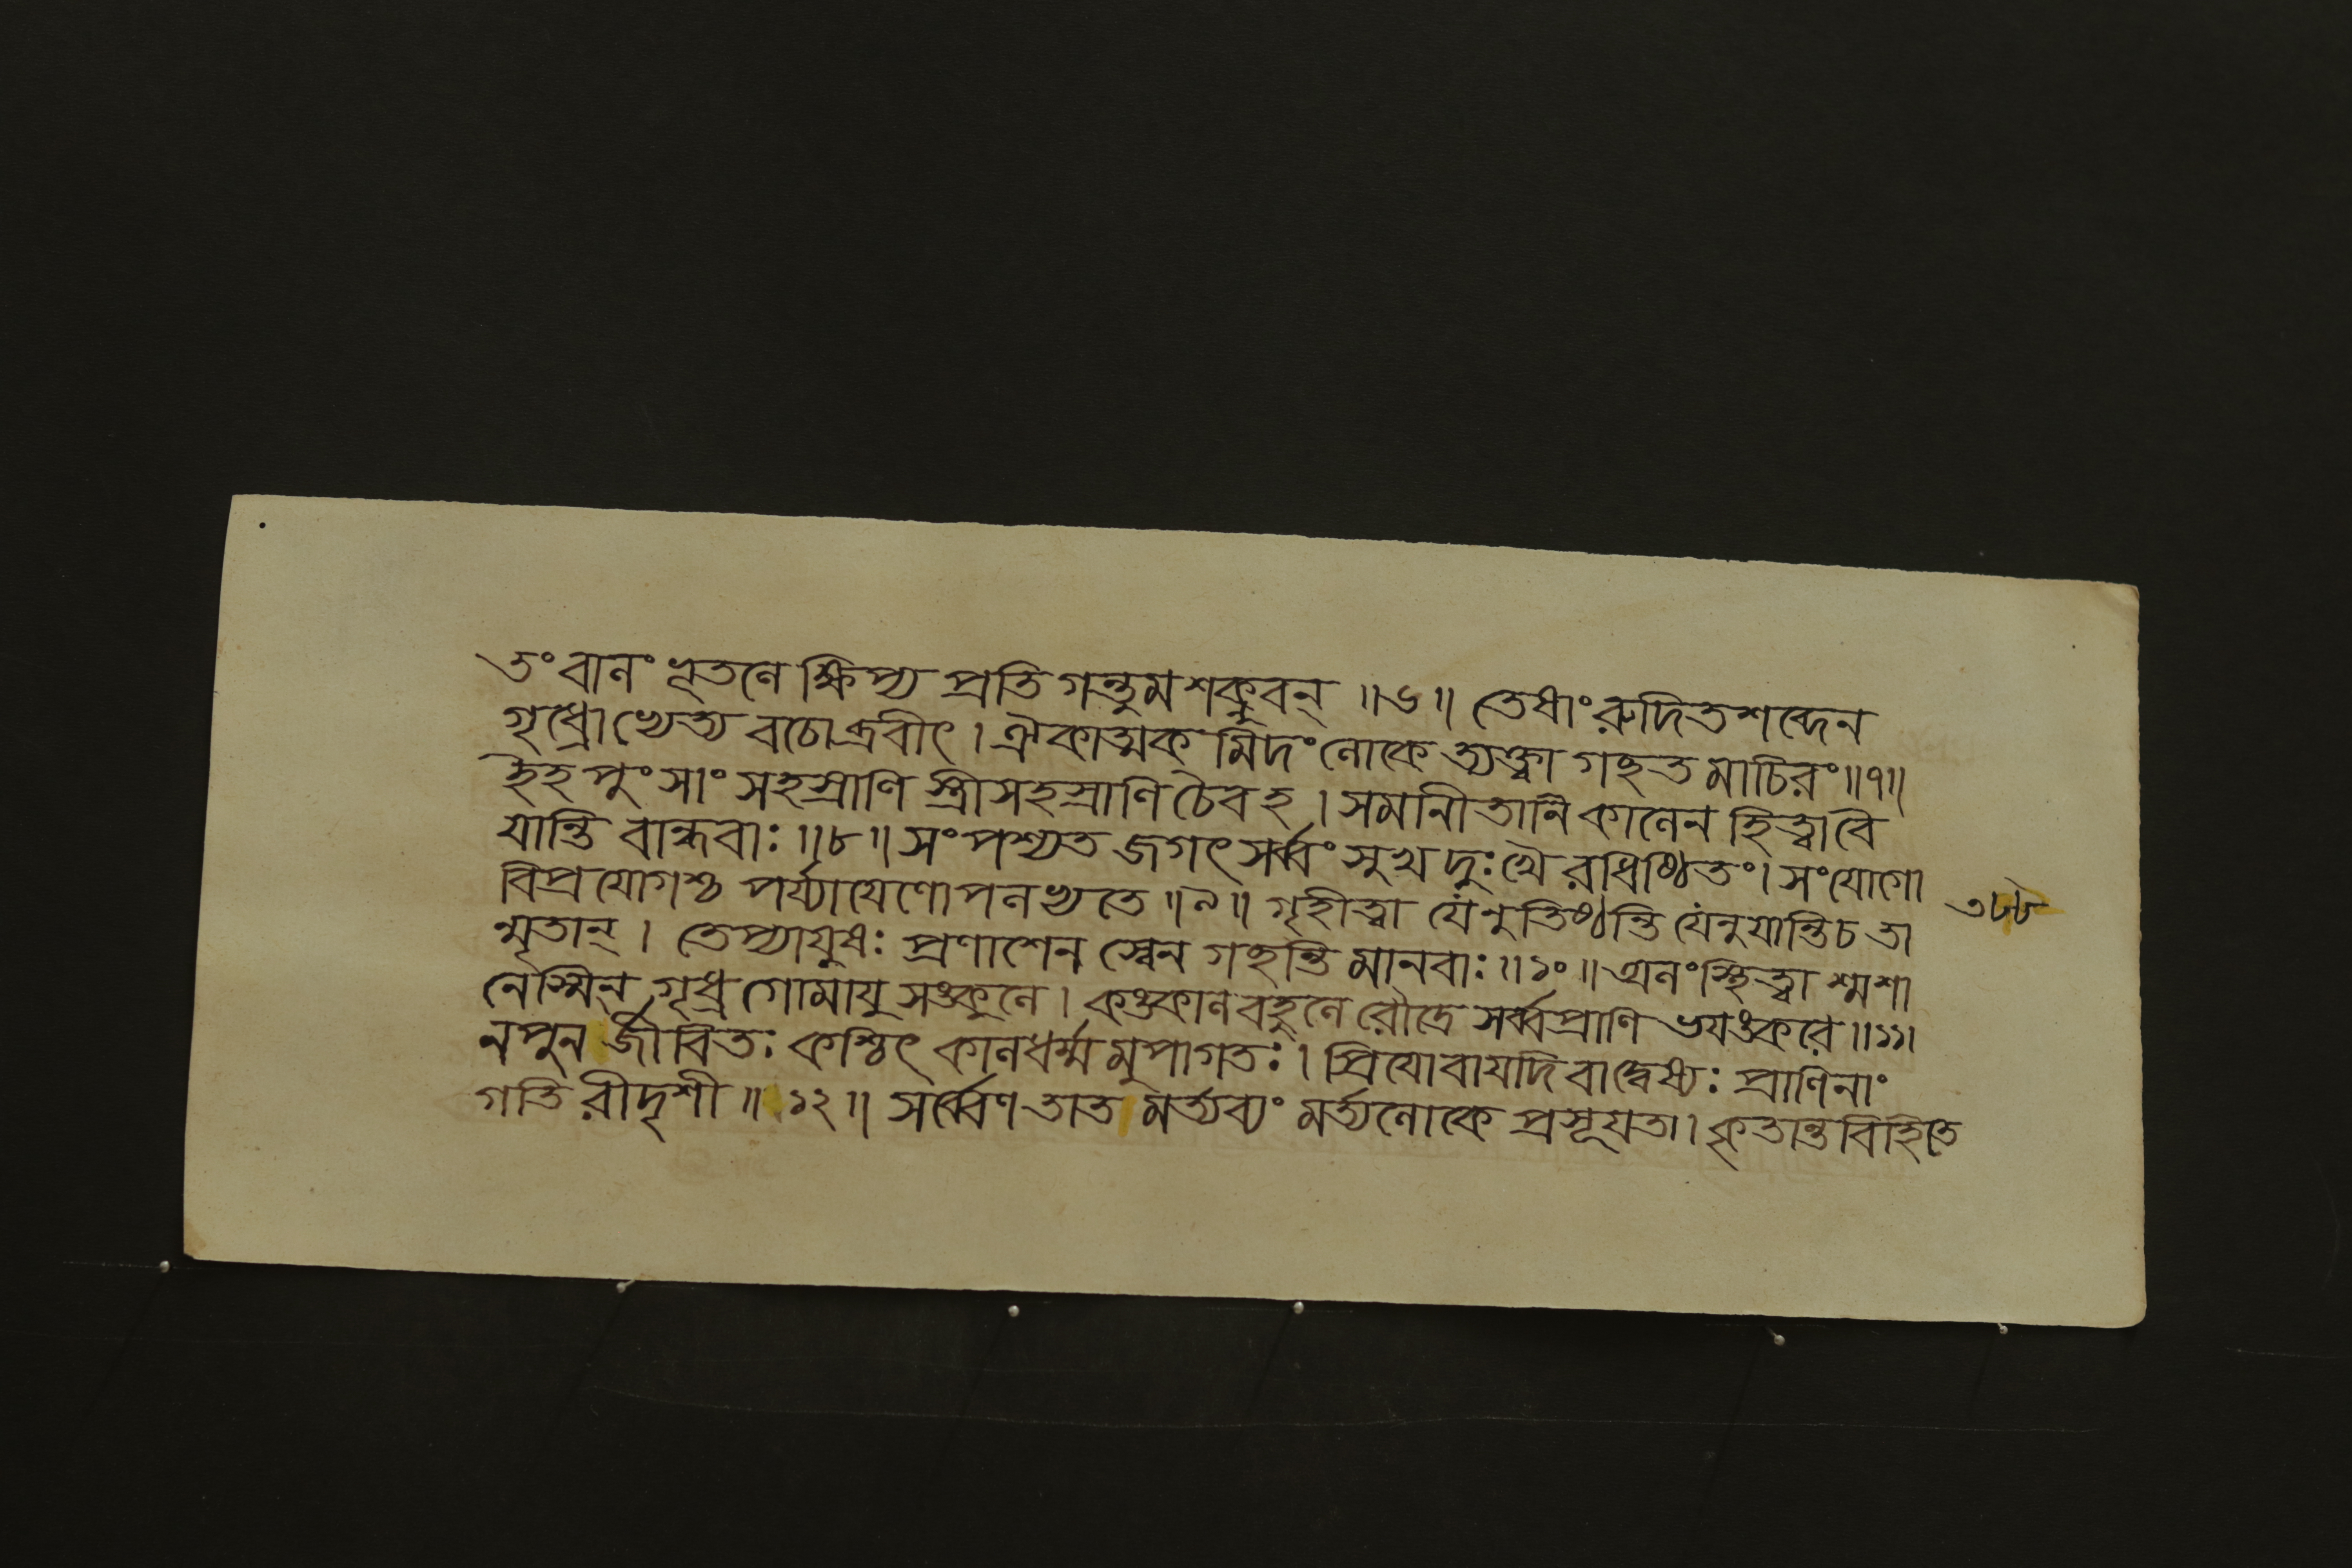 তং বালং ভূতলে ক্ষিপ্য প্রতি গন্তুমশক্নুবন্ ॥৬॥ তেষাং রুদিতশব্দেন
গৃধ্রোভ্যেত্য বচোব্রবীৎ । ঐকাত্মক মিদং লোকে ত্যক্ত্বা গচ্ছত মাচিরং ॥৭॥
ইহ পুংসাং সহস্রাণি স্ত্রীসহস্রাণি চৈবহ । সমানীতানি কালেন হিত্বাবৈ
যান্তি বান্ধবাঃ ॥৮॥ সংপশ্যত জগৎ সর্ব্বং সুখ দুঃখৈ রধিষ্ঠিতং । সংযোগো
বিপ্রযোগশ্চ পর্য্যাযেণোপলভ্যতে ॥৯॥ গৃহীত্বা যেঽনুতিষ্ঠন্তি যেঽনুযান্তি চ তা
ন্মৃতান্ । তেপ্যাযুষঃ প্রণাশেন স্বেন গচ্ছন্তি মানবাঃ ॥১০॥ অলং স্থিত্বা শ্মশা
নেঽস্মিন্ গৃধ্র গোমাযু সঙ্কুলে । কঙ্কালবহুলে রৌদ্রে সর্ব্বপ্রাণি ভযঙ্করে ॥১১।
নপুন র্জীবিতঃ কশ্চিৎ কালধর্ম্ম মুপাগতঃ । প্রিযোবাযদি বাদ্বেষ্যঃ প্রাণিনাং
গতি রীদৃশী ॥ ১২॥ সর্ব্বেণ তাত মর্ত্যব্যং মর্ত্যলোকে প্রসূযতা । কৃতান্ত বিহিতে
৩৮৮